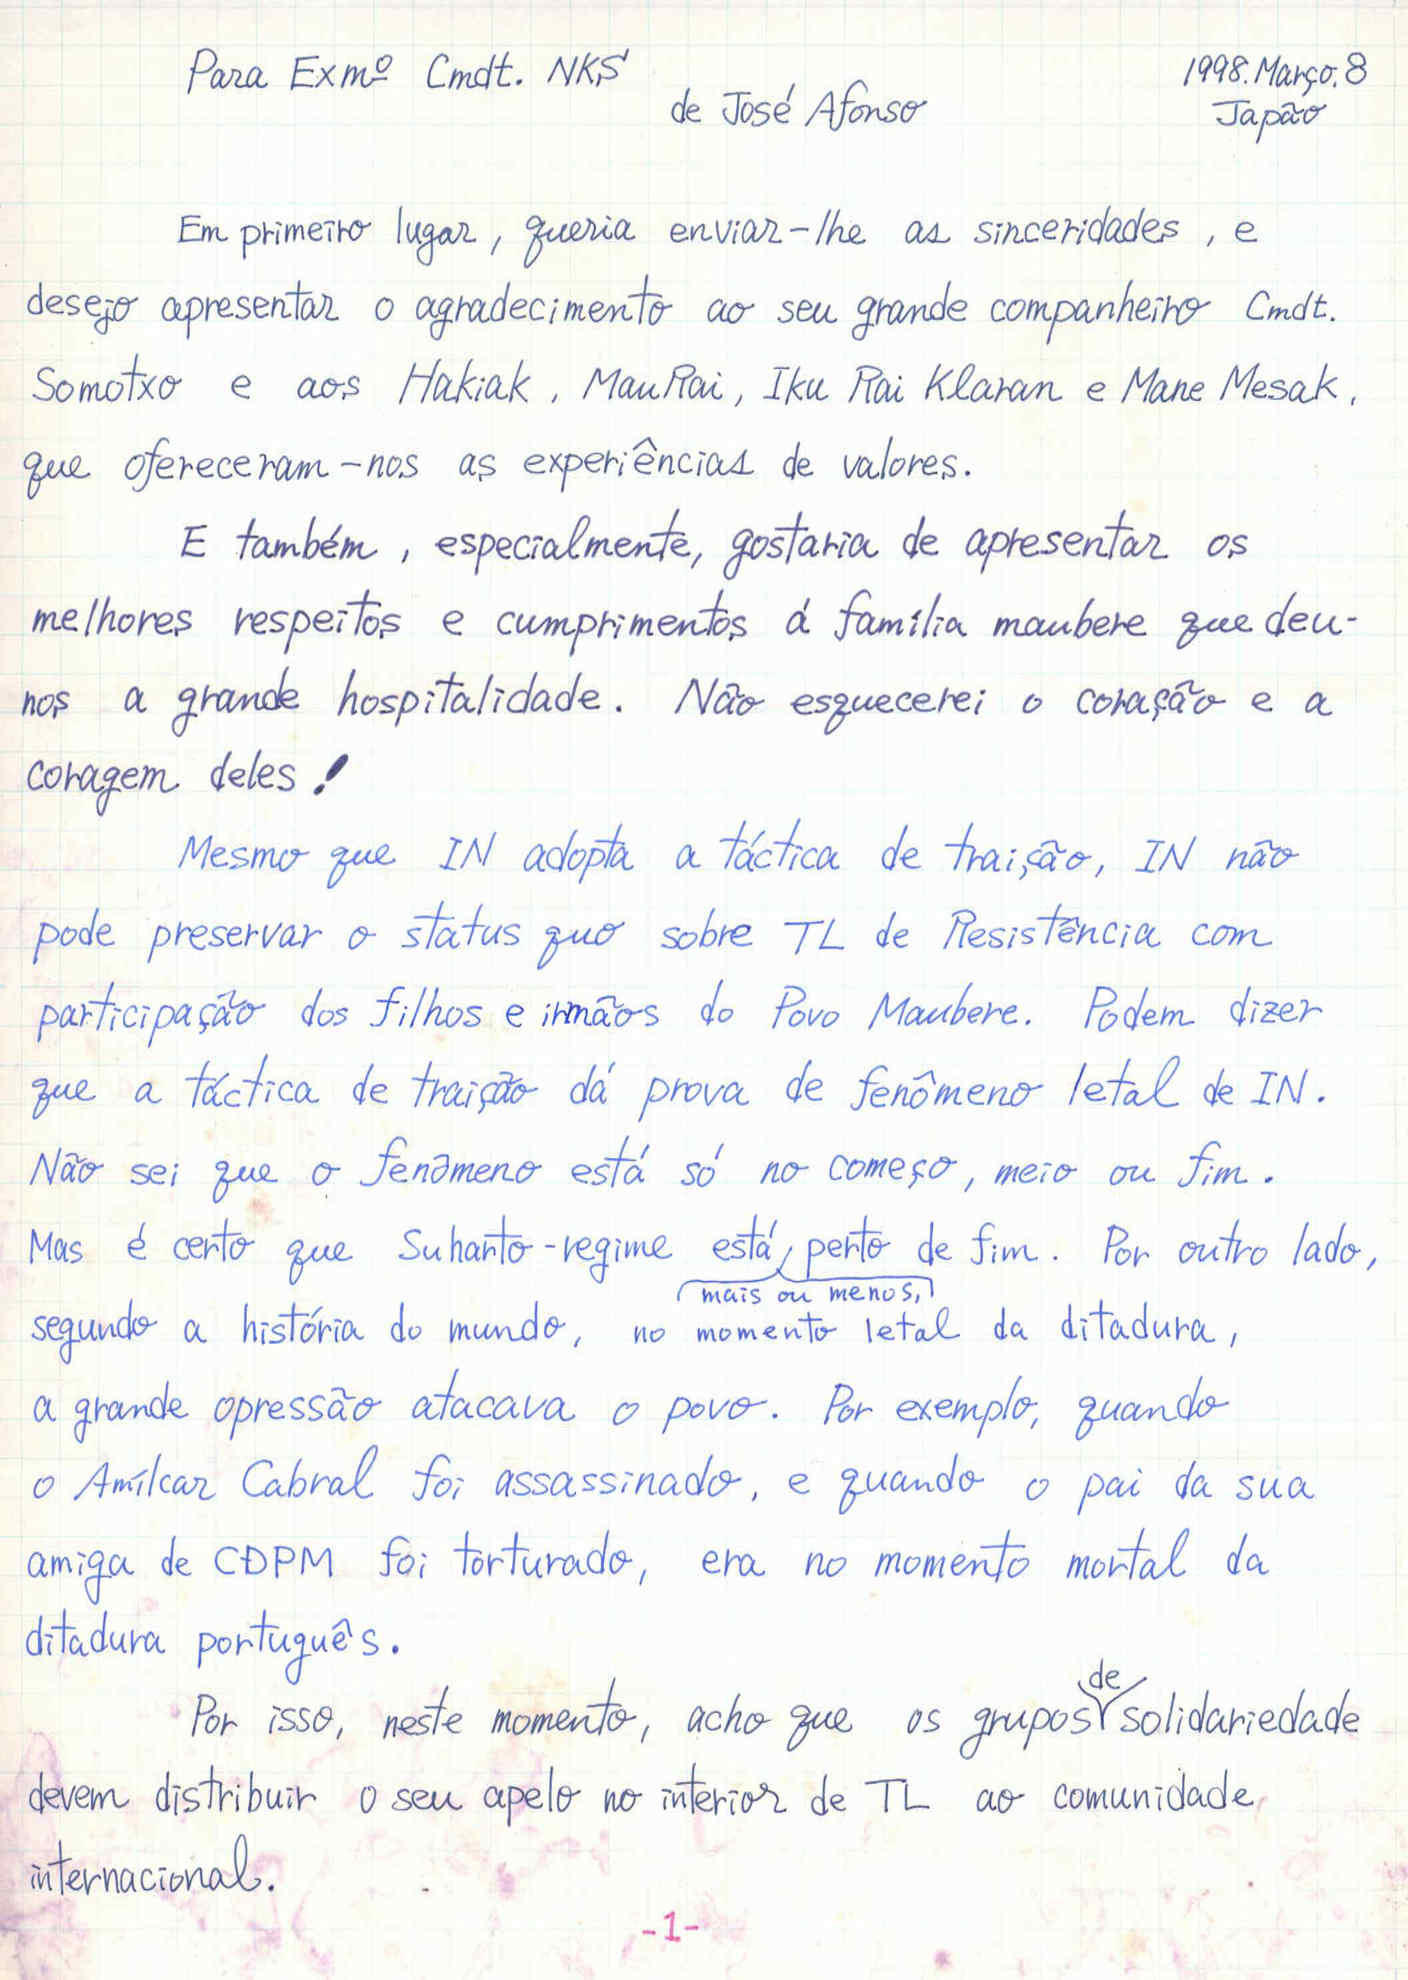 Para Exmº Cmdt. NKS
de José Afonso
1998.Março.8
Japão
Em primeiro lugar, queria enviar-lhe as sinceridades, e
desejo apresentar o agradecimento ao seu grande companheiro Cmdt.
Somotxo e aos Hakiak, Mau Rai, Iku Rai Klaran e Mane Mesak,
que ofereceram-nos as experiências de valores.
E também, especialmente, gostaria de apresentar os
melhores respeitos e cumprimentos á família maubere que deu-
nos a grande hospitalidade. Não esquecerei o coração e a
coragem deles!
Mesmo que IN adopta a táctica de traição, IN não
pode preservar o status quo sobre TL de Resistência com
participação dos filhos e irmãos do Povo Maubere. Podem dizer
que a táctica de traição dá prova de fenômeno letal de IN.
Não sei que o fenômeno está só no começo, meio ou fim.
Mas é certo que Suharto-regime está, perto de fim. Por outro lado,
mais ou menos,
segundo a história do mundo, no momento letal da ditadura,
a grande opressão atacava o povo. Por exemplo, quando
o Amílcar Cabral foi assassinado, e quando o pai da sua
amiga de CDPM foi torturado, era no momento mortal da
ditadura português.
Por isso, neste momento, acho que os grupos de solidariedade
devem distribuir o seu apelo no interior de TL ao comunidade
internacional.
-1-